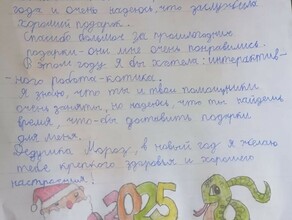 года и очень надеюсь, что заслужила
хороший подарок.
Спасибо большое за прошлогодние
подарки - они мне очень понравились.
В этом году я бы хотела: интерактив-
ного робота-котика.
Я знаю, что ты и твои помощники
очень заняты, но надеюсь, что ты найдёшь
время, что-бы доставить подарки
для меня.
Дедушка Мороз, в новый год я желаю
тебе крепкого здоровья и хорошего
настроения!
2025